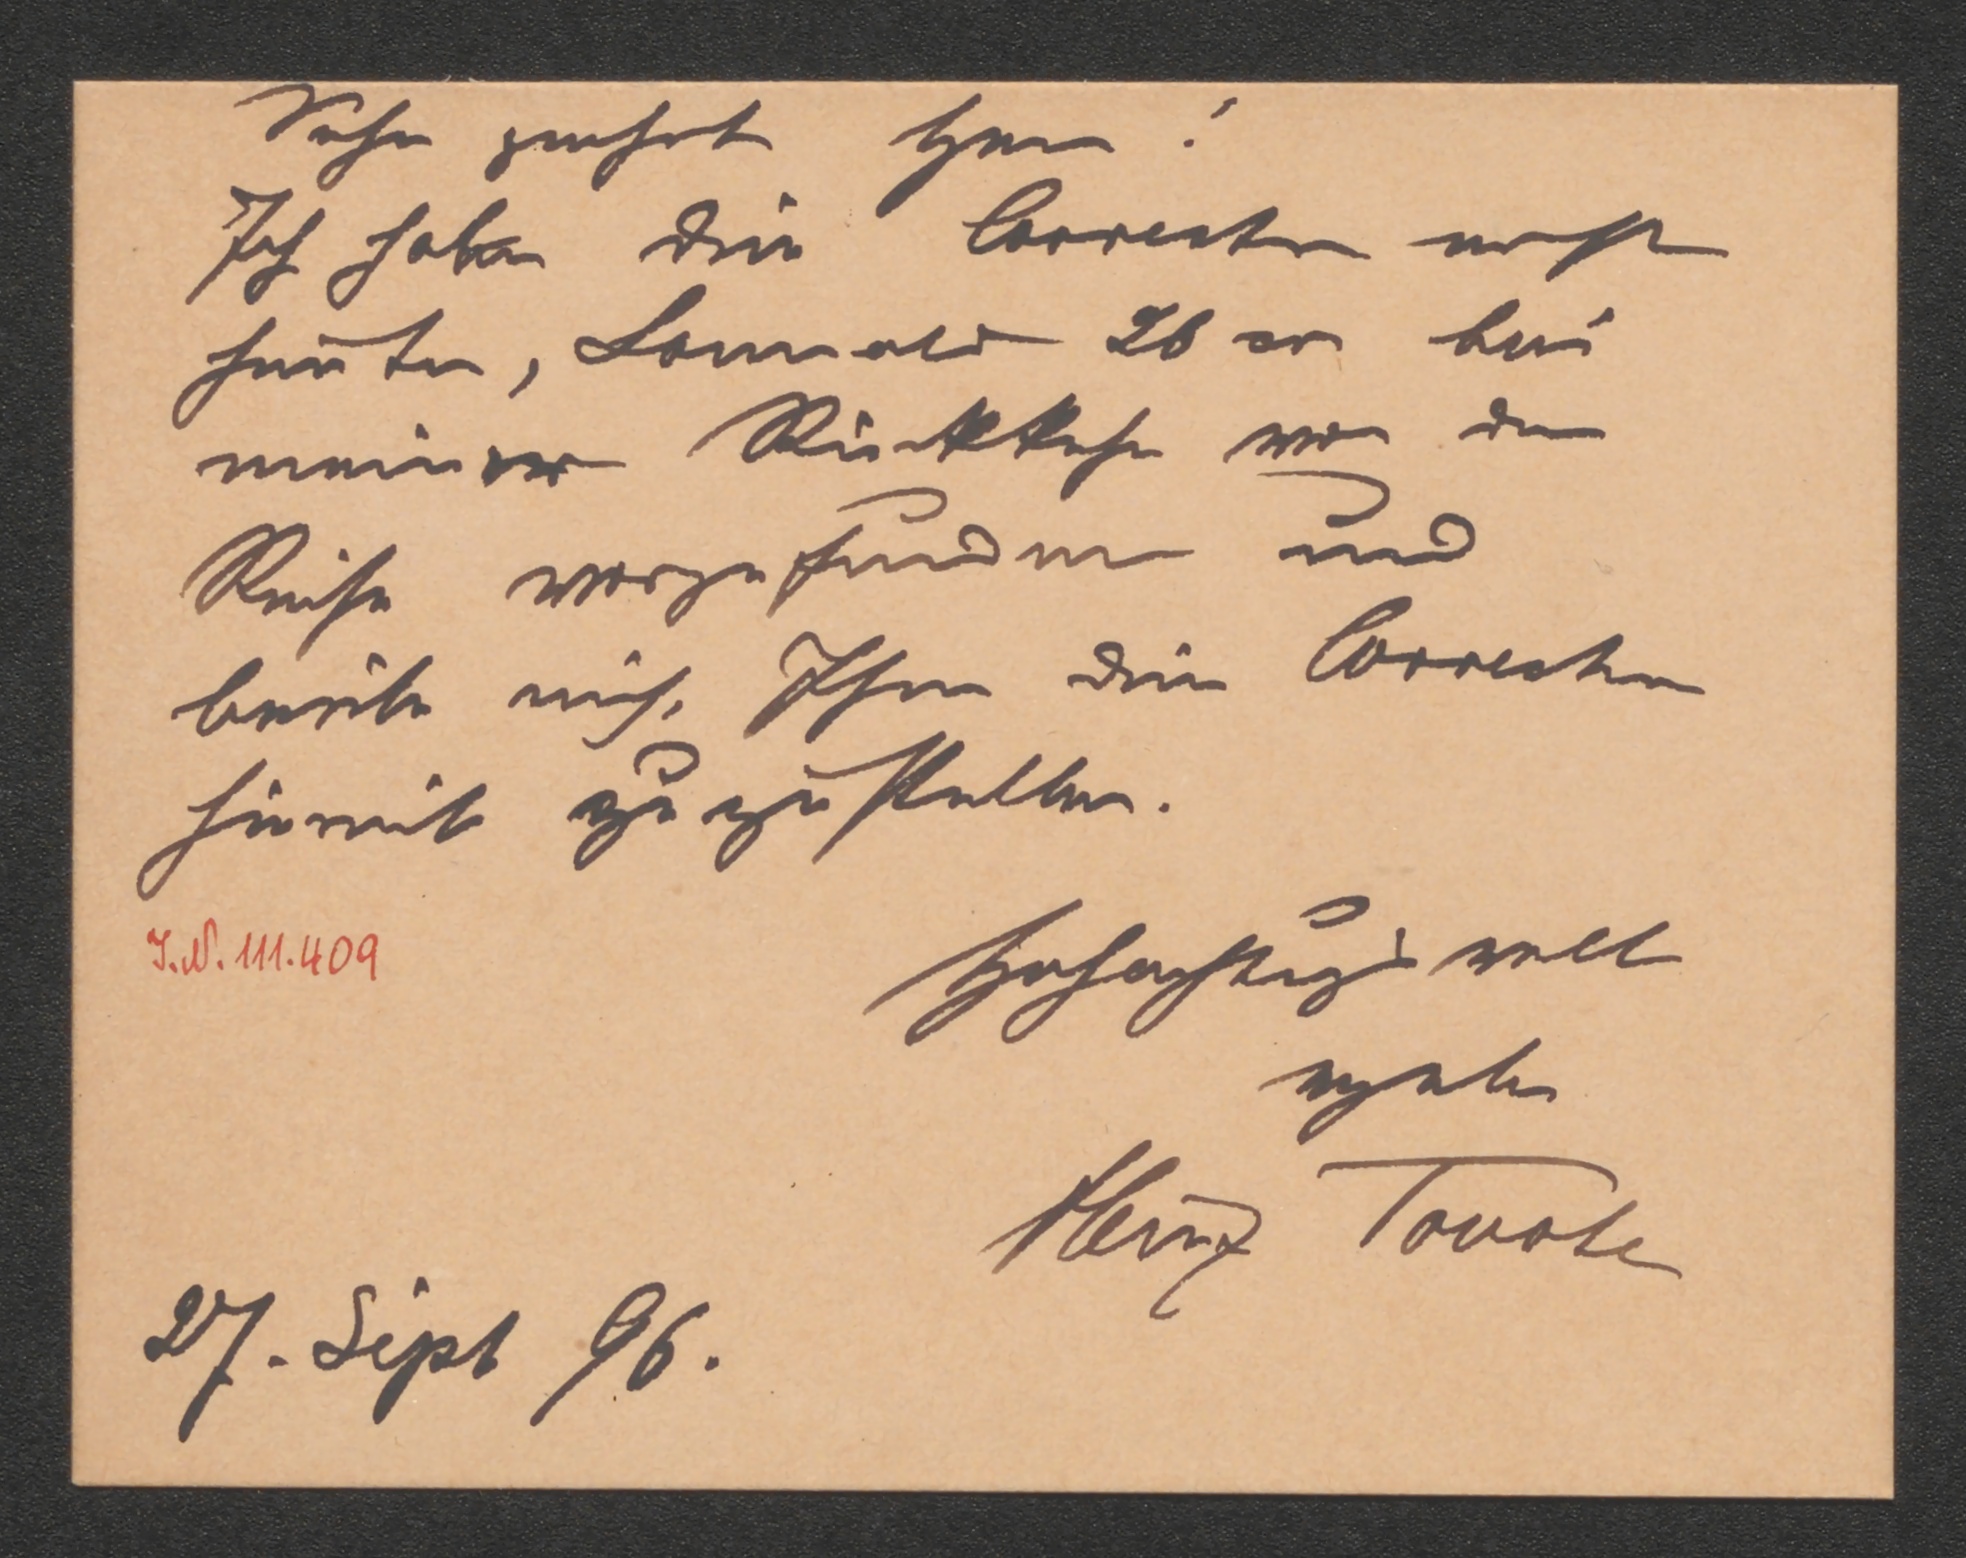 Sehr geehrter Herr!
Ich habe die Correctur erst
heute, Sonnabd 26 er bei
meiner Rückkehr von der
Reise vorgefunden und
beeile mich, Ihnen die Correctur
hiermit zuzustellen.
I.N. 111.409
Hochachtungsvoll
ergebn
Heinz Tovote
27. Sept 96.